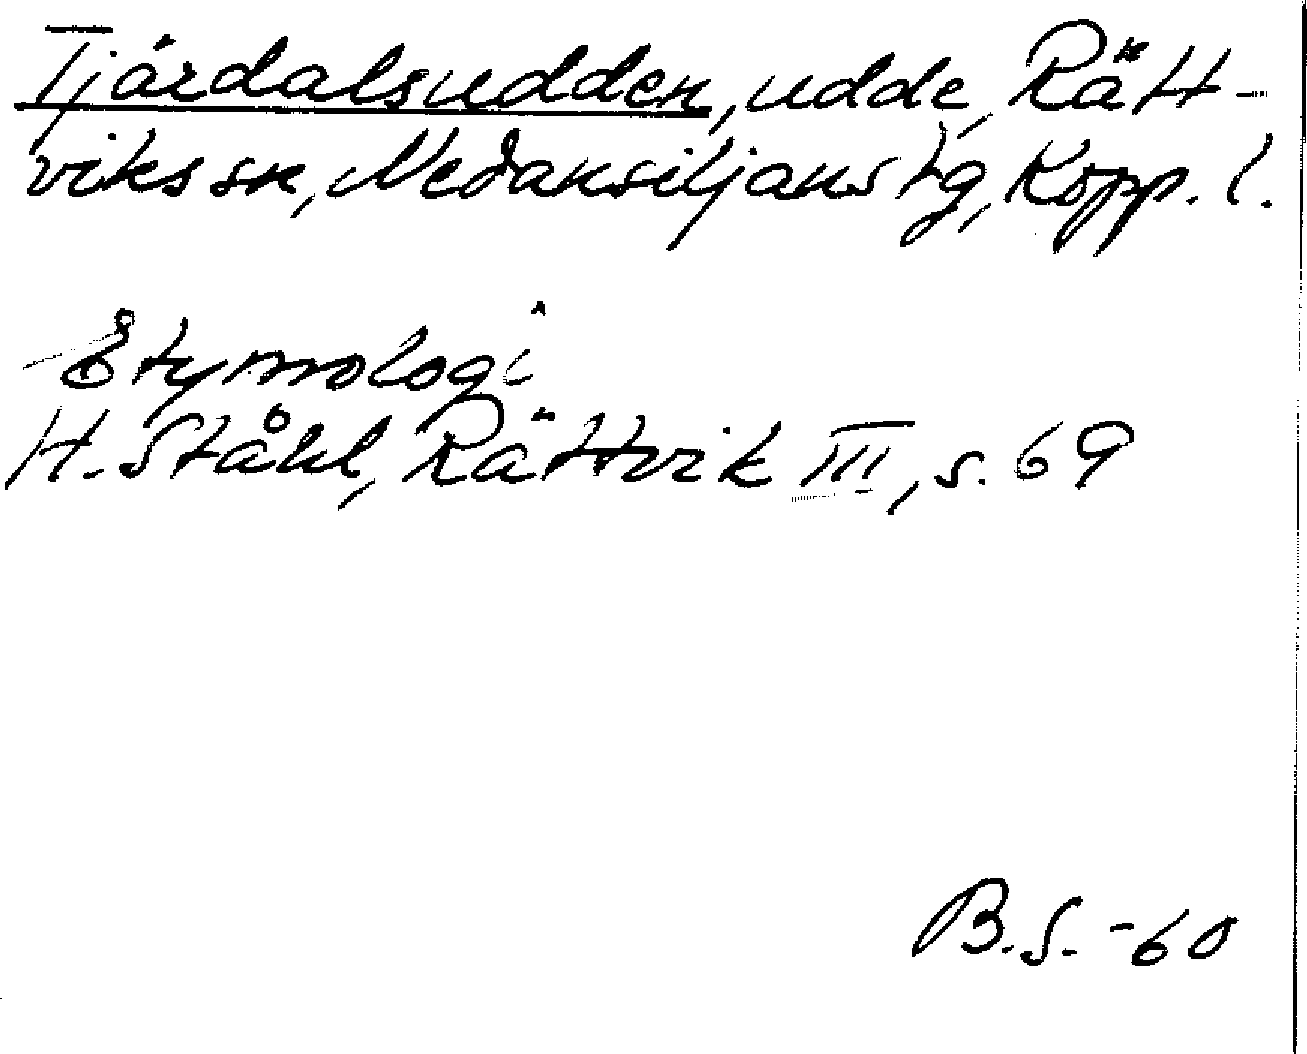 Tjärdalsudden, udde, Rätt-
viks sn, Nedansiljans tg, Kopp. l.
Etymologi
H. Ståhl, Rättvik III, s. 69
B.S. -60